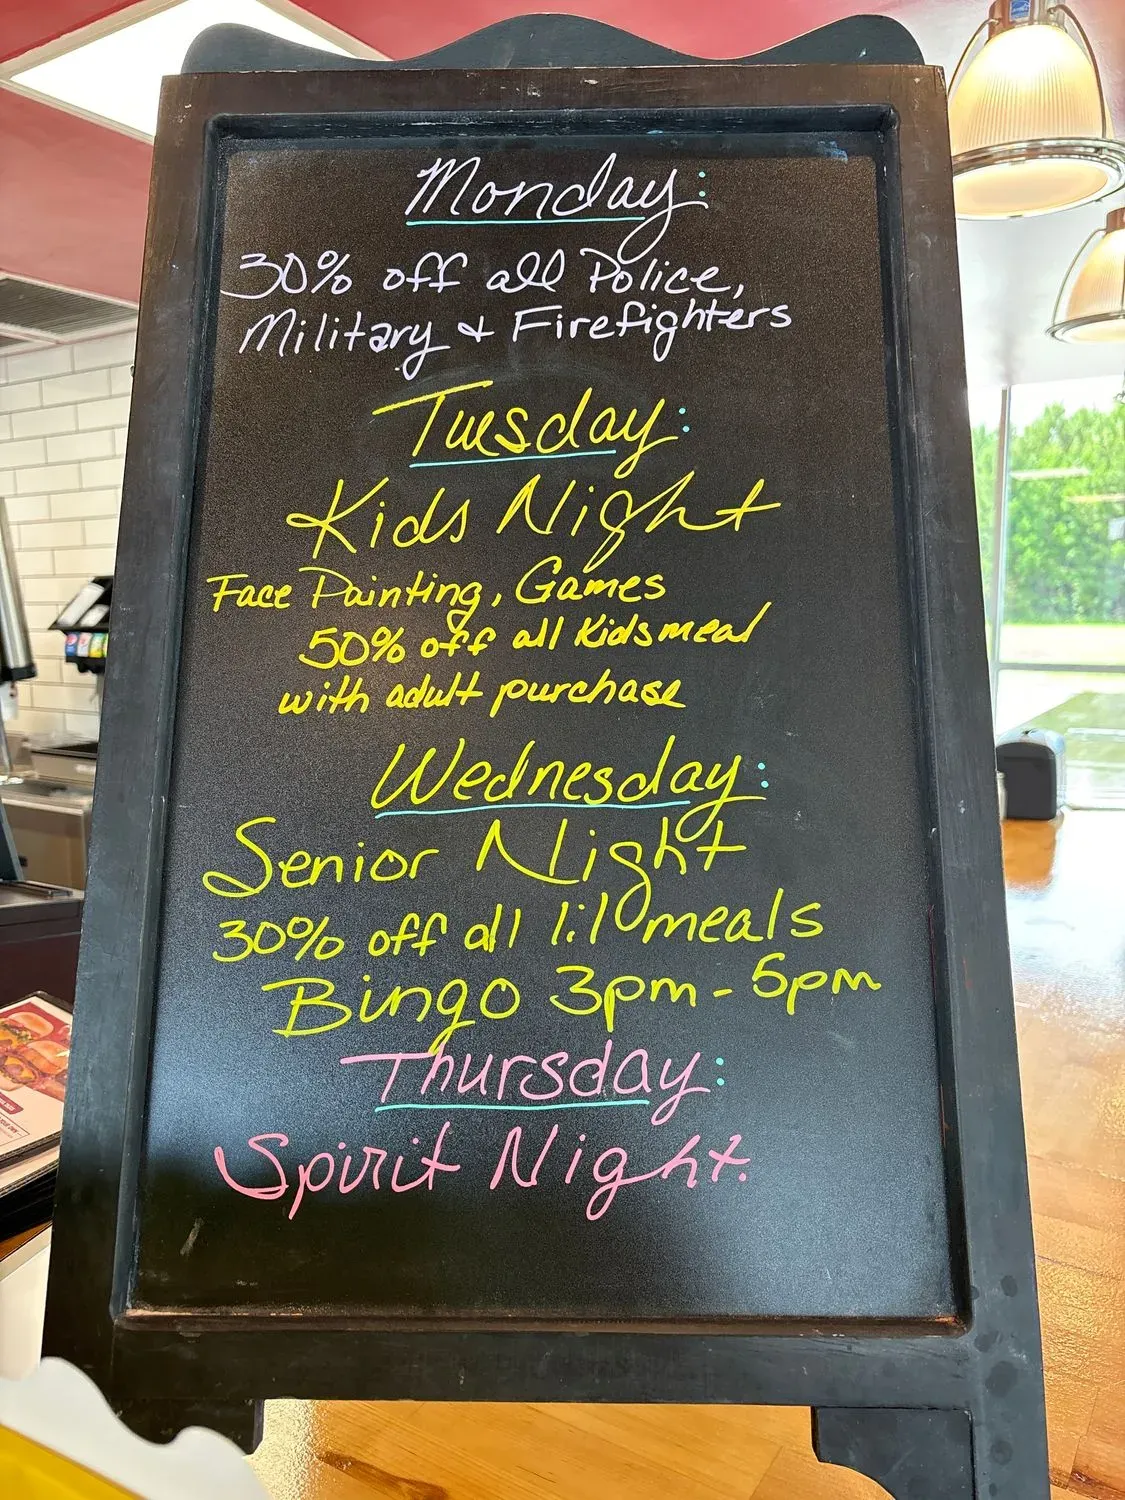 Monday:
30% off all Police,
Military & Firefighters
Tuesday:
Kids Night
Face Painting, Games
50% off all Kidsmeal
with adult purchase
Wednesday:
Senior Night
30% off all lil meals
Bingo 3pm - 5pm
Thursday:
Spirit Night.